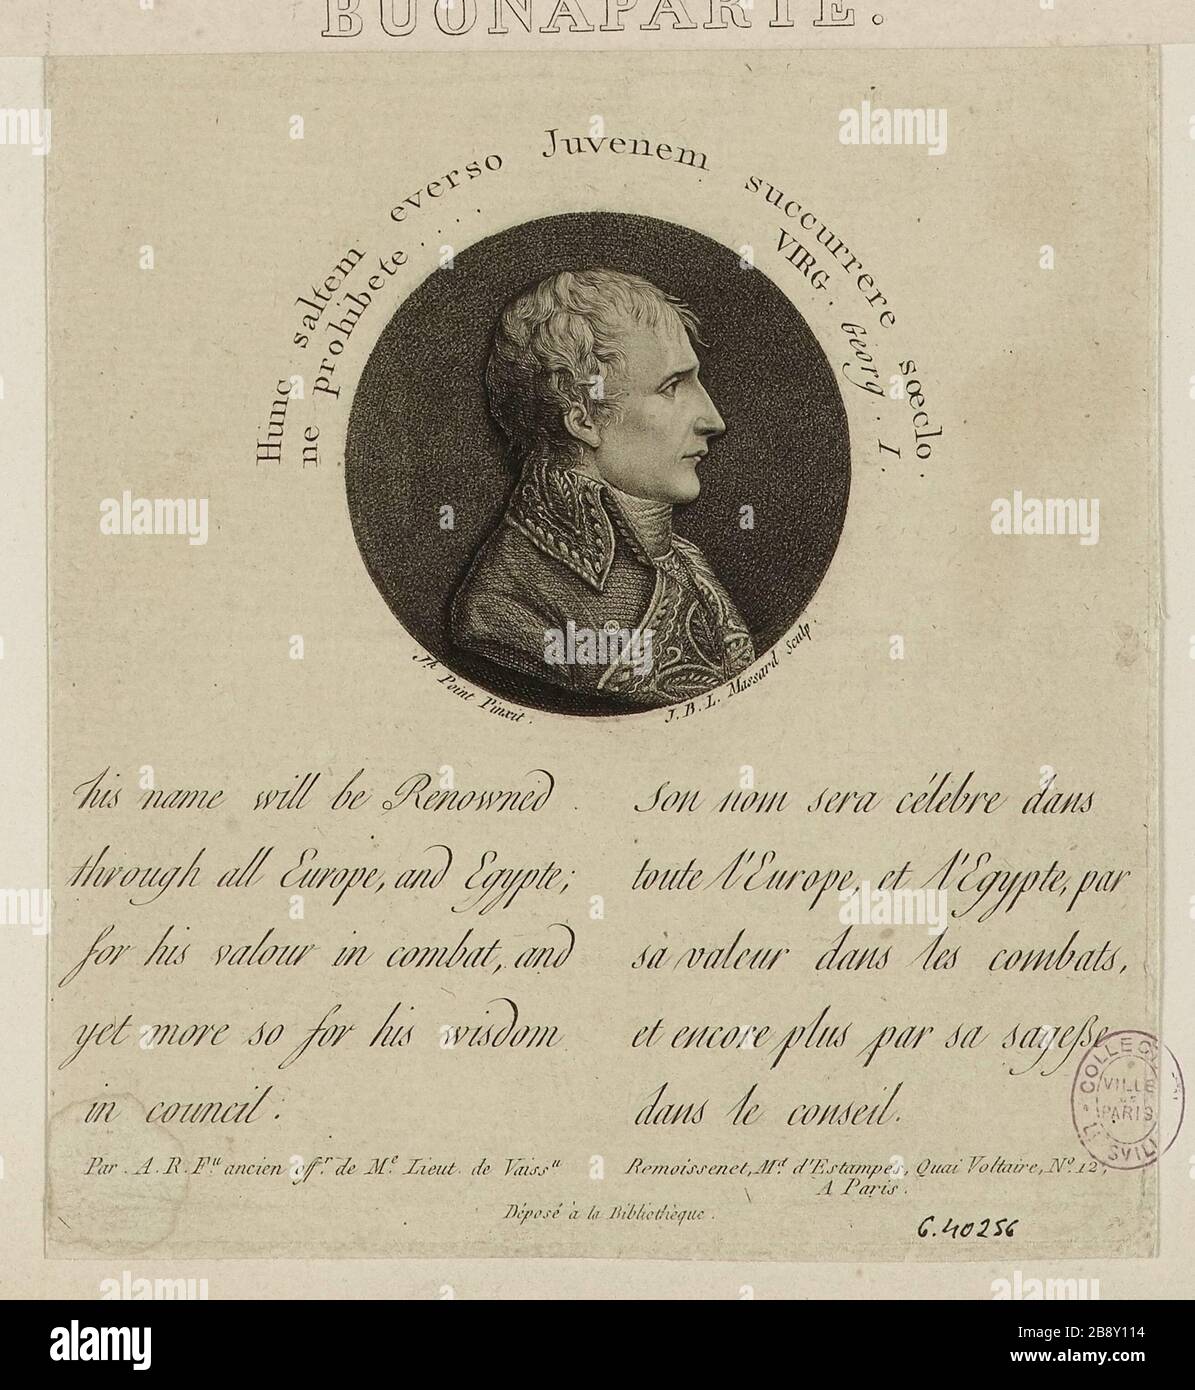 BUONAPARTE.
Hunc saltem everso Juvenem succurrere sœclo.
ne prohibete..... VIRG. Georg. I.
Jh Point Pinxit.
J. B. L. Massard sculp.
his name will be Renowned
through all Europe, and Egypte;
for his valour in combat, and
yet more so for his wisdom
in council.
Son nom sera célébre dans
toute l'Europe, et l'Egypte, par
sa valeur dans les combats,
et encore plus par sa sageße
dans le conseil.
Par. A. R. Fu ancien offr. de Me. Lieut. de Vaissu
Remoissenet, Md. d'Estampes, Quai Voltaire, No. 12,
A Paris.
Déposé à la Bibliothèque.
VILLE
DE
PARIS
G.40256
alamy
Image ID: 2B8Y114
www.alamy.com